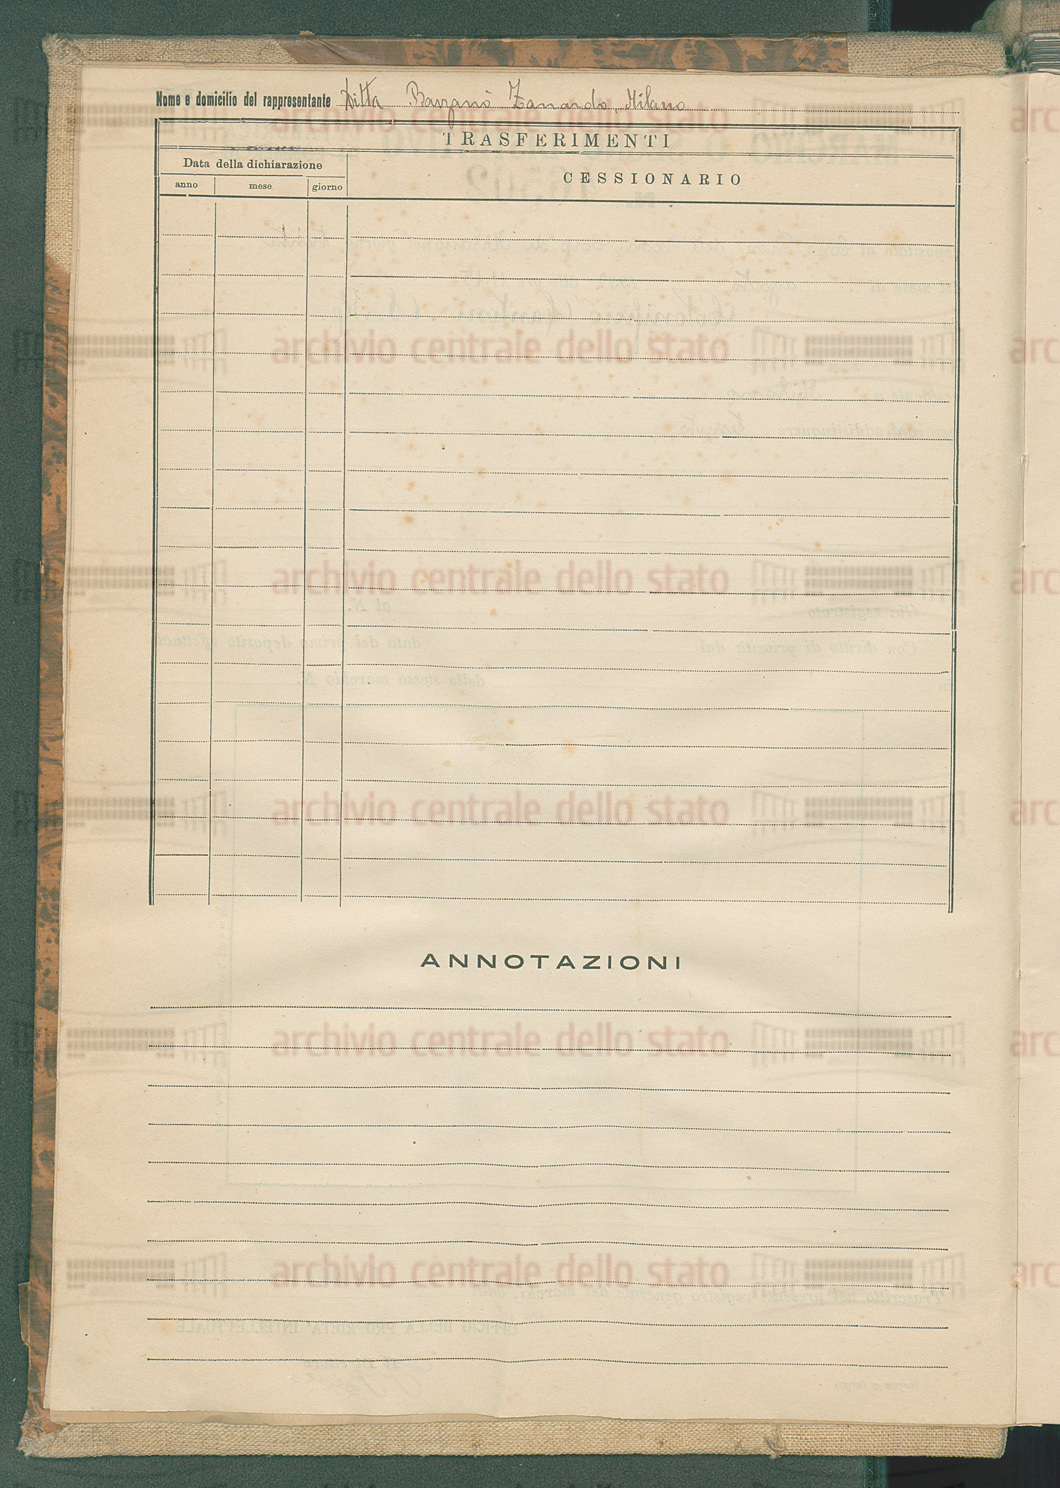 Nome e domicilio del rappresentante Ditta Barzanò Zanardo, Milano
TRASFERIMENTI
Data della dichiarazione
CESSIONARIO
anno mese giorno
archivio centrale dello stato
archivio centrale dello stato
archivio centrale dello stato
archivio centrale dello stato
ANNOTAZIONI
archivio centrale dello stato
archivio centrale dello stato